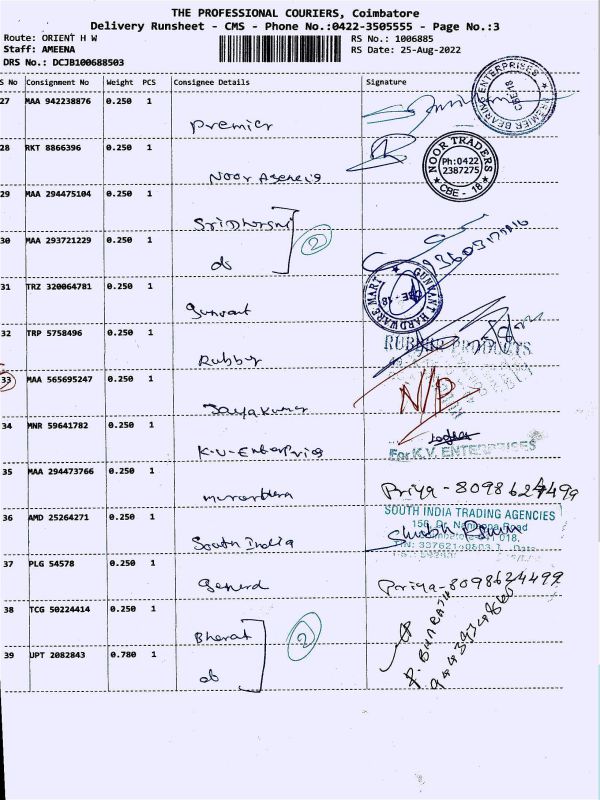 THE PROFESSIONAL COURIERS, Coimbatore
Delivery Runsheet - CMS - Phone No.:0422-3505555 - Page No.:3
Route: ORIENT H W RS No.: 1006885
Staff: AMEENA RS Date: 25-Aug-2022
DRS No.: DCJB100688503
S No Consignment No Weight PCS Consignee Details Signature
27 MAA 942238876 0.250 1
Premier
PREMIER BEARING ENTERPRISES CBE-18
28 RKT 8866396 0.250 1
Noor Agencis
NOOR TRADERS Ph:0422 2387275 CBE - 18
29 MAA 294475104 0.250 1
2
30 MAA 293721229 0.250 1
do
31 TRZ 320064781 0.250 1
Gunvant
GUNVANT HARDWARE MART CBE - 18
32 TRP 5758496 0.250 1
Rubber
RUBBER PRODUCTS
33 MAA 565695247 0.250 1
Jayakumar
N/P
34 MNR 59641782 0.250 1
K.V. Enterprise
For K.V. ENTERPRISES
35 MAA 294473766 0.250 1
Priya - 8098624499
36 AMD 25264271 0.250 1
South India
SOUTH INDIA TRADING AGENCIES
37 PLG 54578 0.250 1
General
Priya - 8098624499
38 TCG 50224414 0.250 1
Bharat
2
39 UPT 2082843 0.780 1
do